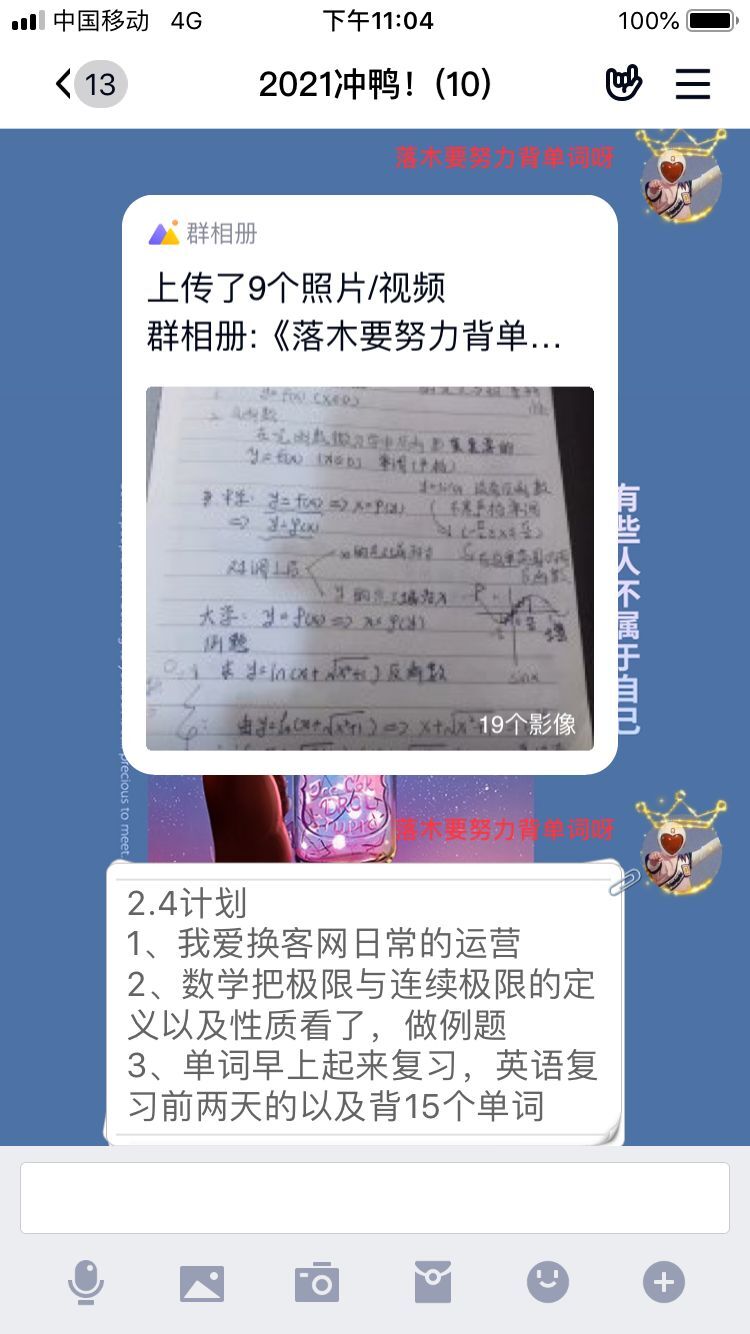 中国移动 4G 下午11:04 100%
13 2021冲鸭！(10)
落木要努力背单词呀
群相册
上传了9个照片/视频
群相册:《落木要努力背单...
y=f(x) (x∈D)
y=f(x) (x∈D) 单调(严格)
y=f(x) => x=φ(y)
=> y=φ(x)
对调上后
大学: y=f(x) => x=φ(y)
例题
求 y=ln(x+√x²+1) 反函数
sinx
由y=ln(x+√x²+1) => x+√x²+1
19个影像
有些人不属于自己
precious to meet.
落木要努力背单词呀
2.4计划
1、我爱换客网日常的运营
2、数学把极限与连续极限的定
义以及性质看了，做例题
3、单词早上起来复习，英语复
习前两天的以及背15个单词